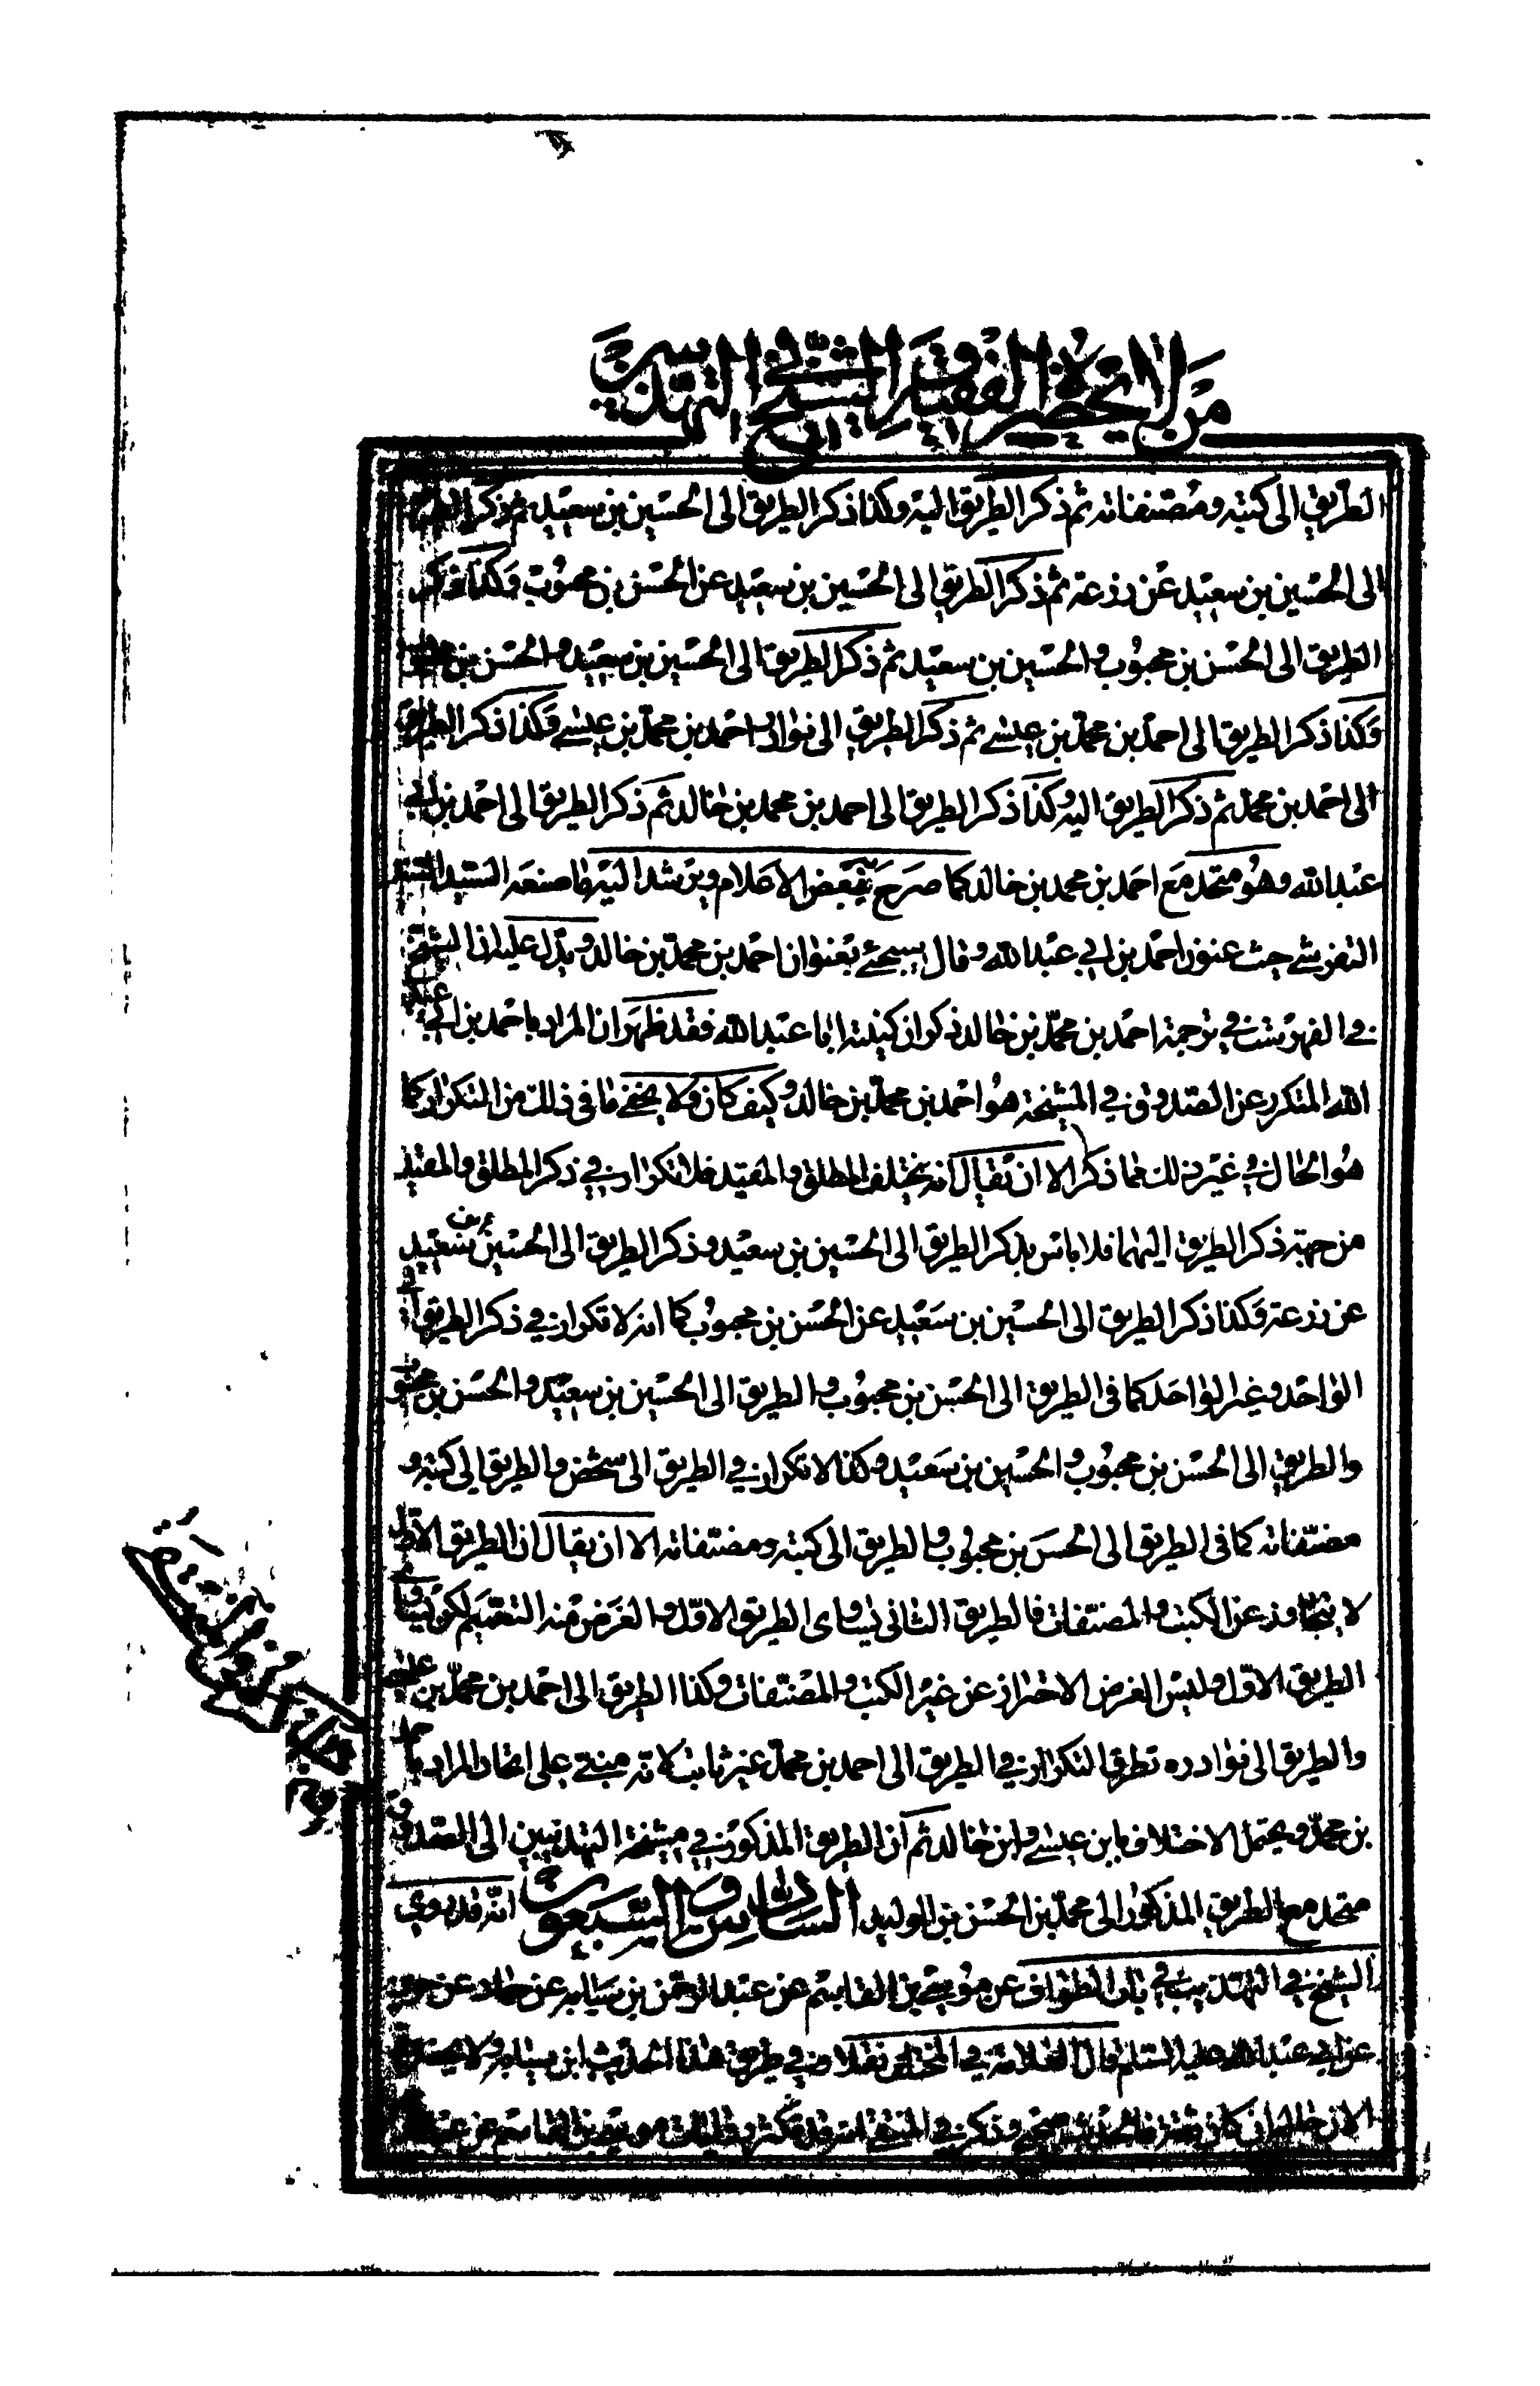 من لا يحضره الفقيه والشيخ في التهذيب
الطريق الى كتبه ومصنفاته ثم ذكر الطريق اليه وكذا ذكر الطريق الى الحسين بن سعيد ثم ذكر الطريق
الى الحسين بن سعيد عن زرعة ثم ذكر الطريق الى الحسين بن سعيد عن الحسن بن محبوب وكذا ذكر
الطريق الى الحسن بن محبوب والحسين بن سعيد ثم ذكر الطريق الى الحسين بن سعيد والحسن بن محبوب
وكذا ذكر الطريق الى احمد بن محمد بن عيسى ثم ذكر الطريق الى نوادر احمد بن محمد بن عيسى وكذا ذكر الطريق
الى احمد بن محمد ثم ذكر الطريق اليه وكذا ذكر الطريق الى احمد بن محمد بن خالد ثم ذكر الطريق الى احمد بن ابي
عبد الله وهو متحد مع احمد بن محمد بن خالد كما صرح به بعض الاعلام ويرشد اليه ما صنعه السيد السند
التفرشى حيث عنون احمد بن ابي عبد الله وقال سيجئ بعنوان احمد بن محمد بن خالد ويدل عليه ان الشيخ
في الفهرست في ترجمة احمد بن محمد بن خالد ذكر ان كنيته ابا عبد الله فقد ظهر ان المراد باحمد بن ابي عبد
الله المتكرر عن الصدوق في المشيخة هو احمد بن محمد بن خالد وكيف كان ولا يخفى ما في ذلك من التكرار كما
هو الحال في غير ذلك مما ذكر الا ان يقال انه يختلف المطلق والمقيد فلا تكرار في ذكر المطلق والمقيد
من جهة ذكر الطريق اليهما فلا باس بذكر الطريق الى الحسين بن سعيد وذكر الطريق الى الحسين بن سعيد
عن زرعة وكذا ذكر الطريق الى الحسين بن سعيد عن الحسن بن محبوب كما انه لا تكرار في ذكر الطريق الى
الواحد وغير الواحد كما في الطريق الى الحسن بن محبوب والطريق الى الحسين بن سعيد والحسن بن محبوب
والطريق الى الحسن بن محبوب والحسين بن سعيد وكذا لا تكرار في الطريق الى شخص والطريق الى كتبه و
مصنفاته كما في الطريق الى الحسن بن محبوب والطريق الى كتبه ومصنفاته الا ان يقال ان الطريق الاول
لا يتجاوز عن الكتب والمصنفات فالطريق الثاني يساوى الطريق الاول والغرض منه التعميم
الطريق الاول وليس الغرض الاحتراز عن غير الكتب والمصنفات وكذا الطريق الى احمد بن محمد بن عيسى
والطريق الى نوادره تطرق التكرار في الطريق الى احمد بن محمد غير ثابت لانه مبتن على اتحاد المراد باحمد
بن محمد ويحتمل الاختلاف بابن عيسى وابن خالد ثم ان الطريق المذكور في مشيخة التهذيبين الى الصدوق
متحد مع الطريق المذكور الى محمد بن الحسن بن الوليد السادس والسبعون انه قد روى
الشيخ في التهذيب في باب الطواف عن موسى بن القاسم عن عبد الرحمن بن سيابة عن حماد عن حريز
عن ابي عبد الله عليه السلام قال العلامة في المختلف في طريق هذا الحديث ابن سيابة ولا يحضرني
الان حاله فان كان ثقة فالحديث صحيح وذكر في المنتقى انه قد كثر روايات موسى بن القاسم عن عبد